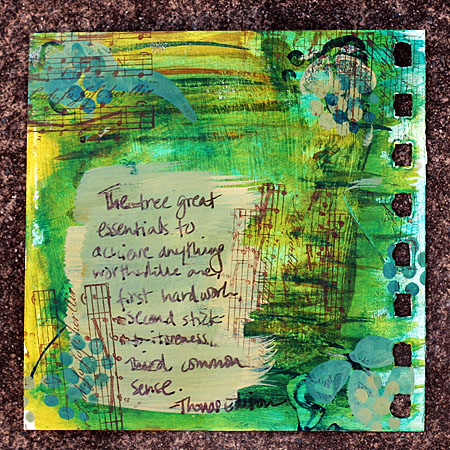 The three great
essentials to
achieve anything
worthwhile are,
first hard work,
second stick
-to-itiveness,
third common
sense.
-Thomas Edison